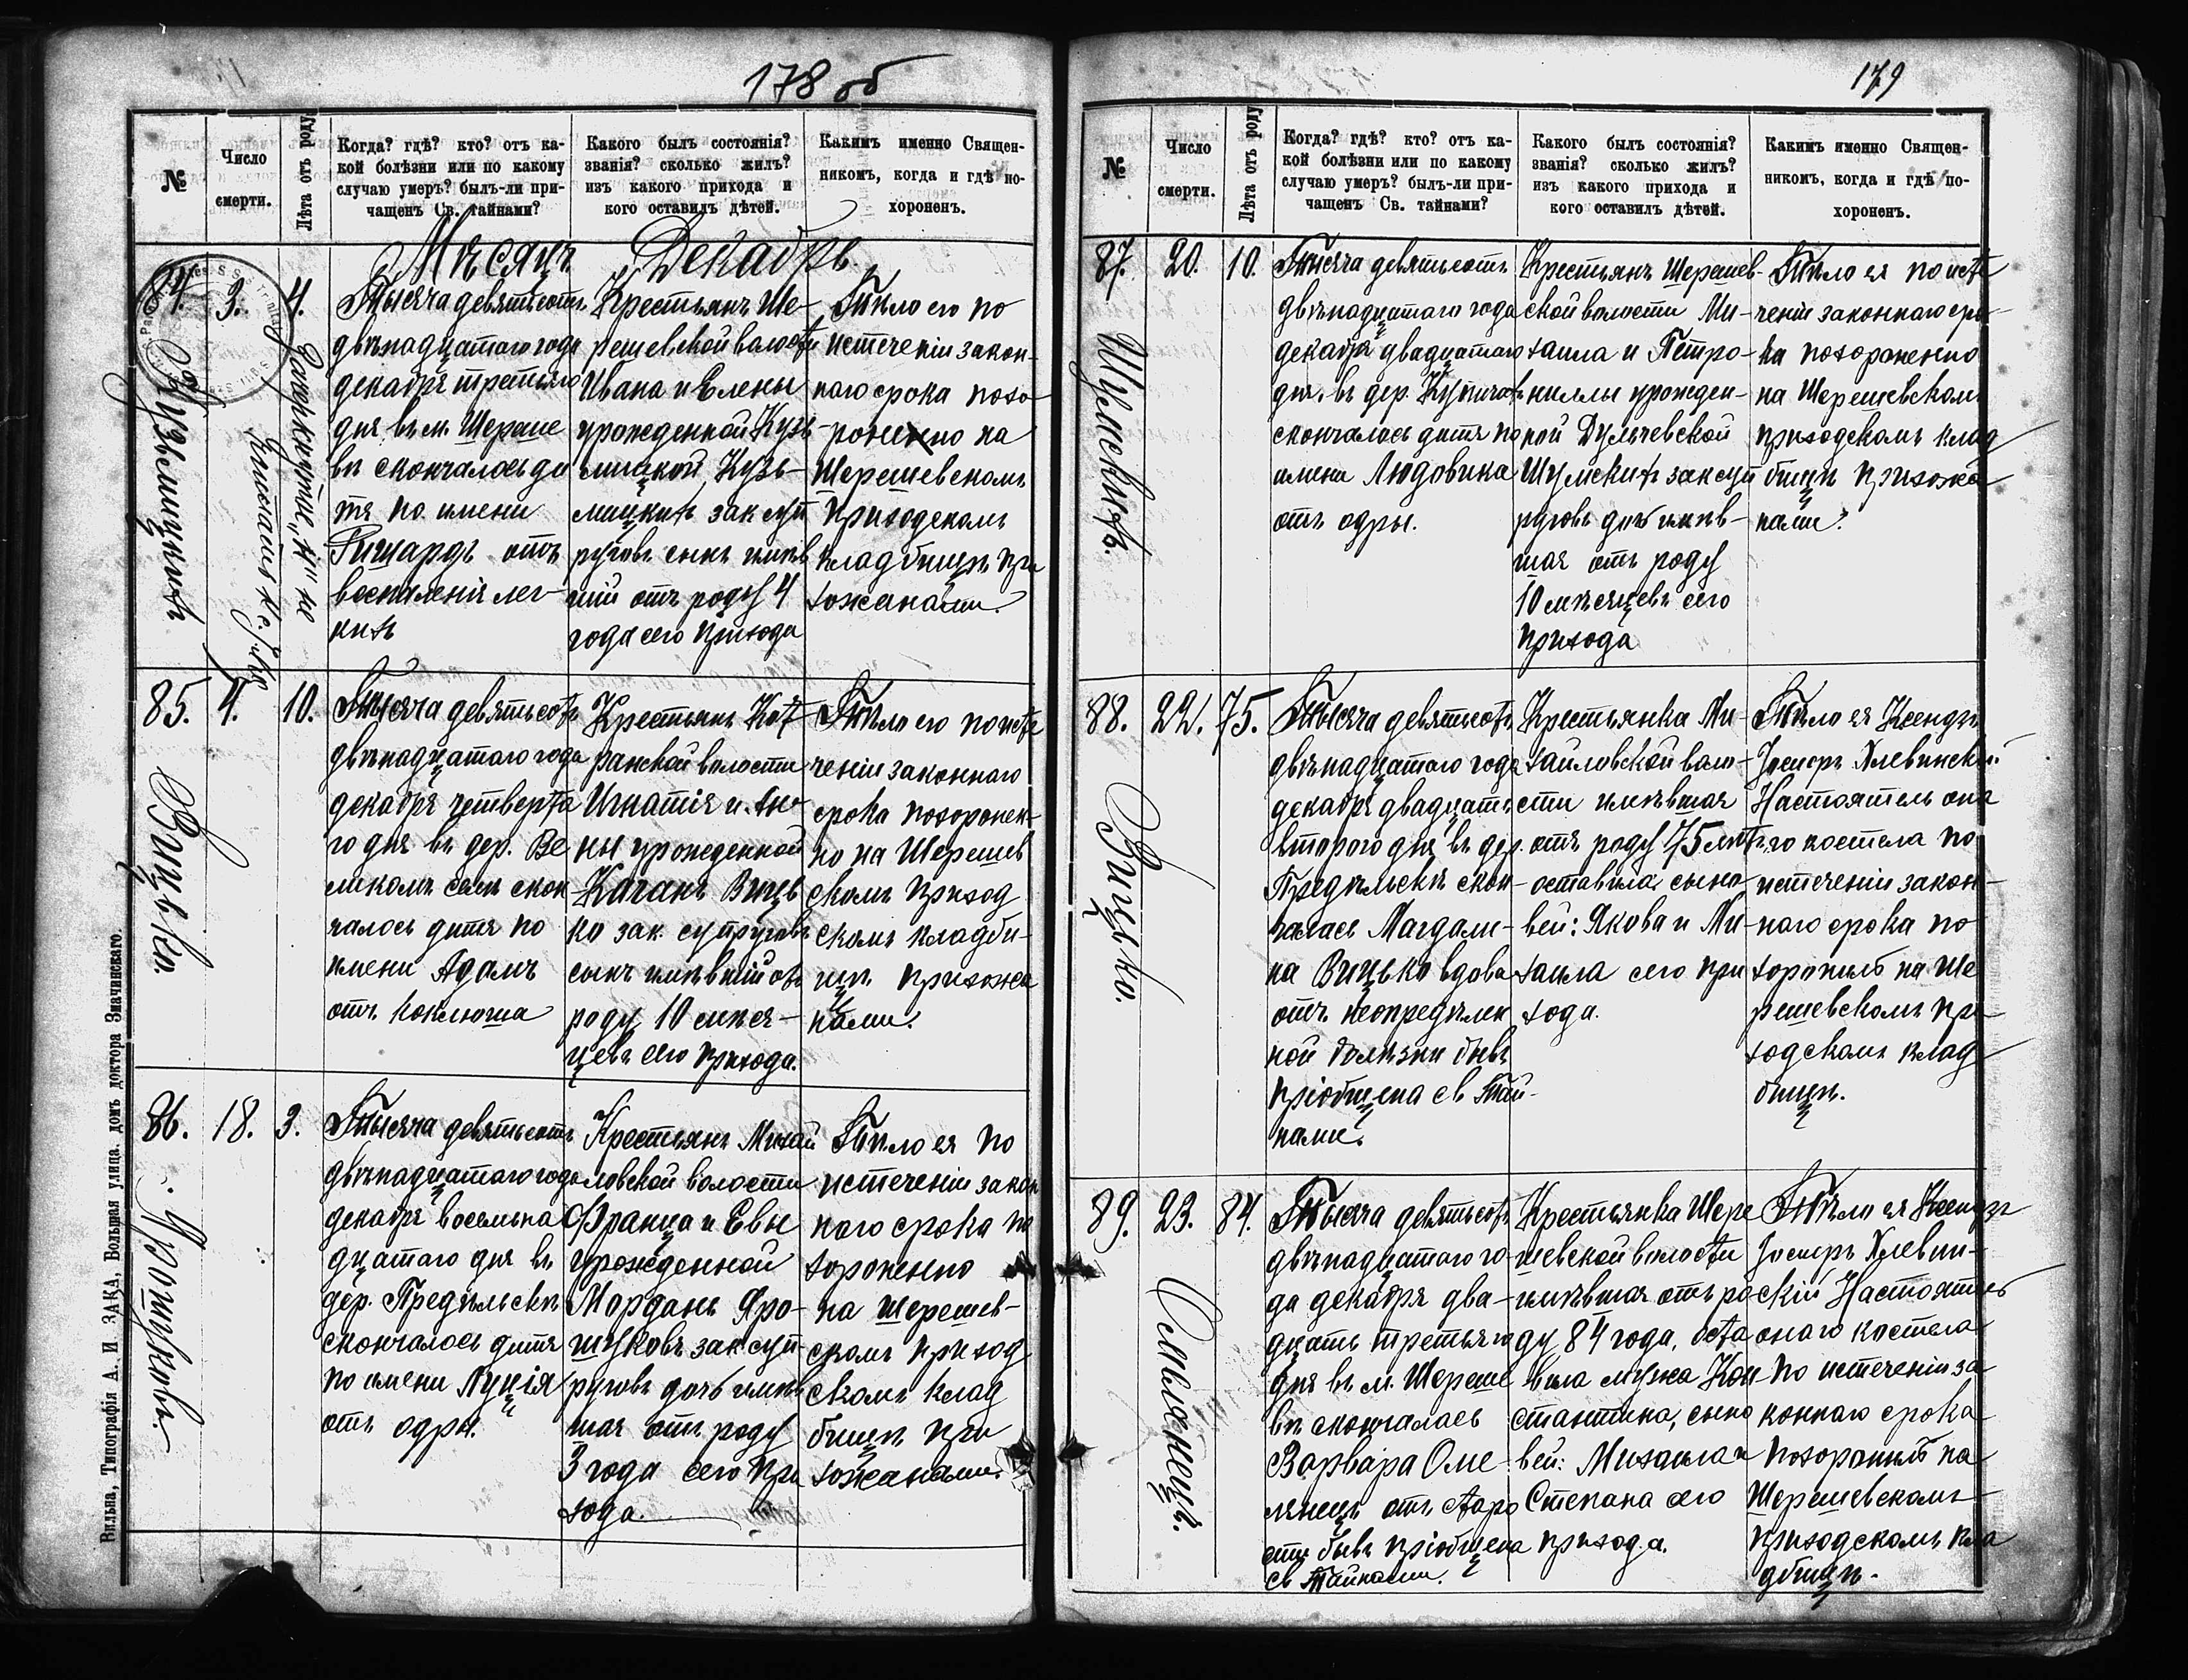 178 об
№
Число
смерти.
Лѣта отъ роду
Когда? гдѣ? кто? отъ ка-
кой болѣзни или по какому
случаю умеръ? былъ-ли при-
чащенъ Св. тайнами?
Какого былъ состоянія?
званія? сколько жилъ?
изъ какого прихода и
кого оставилъ дѣтей.
Какимъ именно Священ-
никомъ, когда и гдѣ по-
хороненъ.
Мѣсяцъ Декабрь.
84
3.
4.
Кузьмицкихъ
Зачеркнутое „н" не
читать
Тысяча девятьсотъ
двѣнадцатаго года
декабря третьяго
дня въ м. Шереше
вѣ скончалось ди
тя по имени
Ришардъ отъ
воспаленія лег-
кихъ
Крестьянъ Ше-
решевской волости
Ивана и Елены
урожденной Кузь-
мицкой, Кузь-
мицкихъ зак суп
руговъ сынъ имѣв
шій отъ роду 4
года сего прихода
Тѣло его по
истеченіи закон-
наго срока похо-
роненно на
Шерешевскомъ
приходскомъ
кладбищѣ при
хожанами.
85.
4.
10.
Вицько.
Тысяча девятьсотъ
двѣнадцатаго года
декабря четверта
го дня въ дер. Ве
ликомъ селѣ скон
чалось дитя по
имени Адамъ
отъ коклюша
Крестьянъ Кот
ранской волости
Игнатія и Ан-
ны урожденной
Каганъ Вицъ
ко зак. супруговъ
сынъ имѣвшій отъ
роду 10 мѣся-
цевъ сего прихода.
Тѣло его по исте
ченіи законнаго
срока похоронен-
но на Шерешев
скомъ приход
скомъ кладби-
щѣ прихожа
нами.
86.
18.
3.
Ярошуковъ.
Тысяча девятьсотъ
двѣнадцатаго года
декабря восемьна
дцатаго дня въ
дер. Предѣльскѣ
скончалось дитя
по имени Луція
отъ одры.
Крестьянъ Михай
ловской волости
Франца и Евы
урожденной
Марданъ Яро-
шуковъ зак суп
руговъ дочь имѣв
шая отъ роду
3 года сего при
хода.
Тѣло ея по
истеченіи закон
наго срока по
хороненно
на Шерешев-
скомъ приход
скомъ клад
бищѣ при
хожанами.
Вильна, Типографія А. И ЗАКА, Большая улица, домъ доктора Значинскаго.
179
№
Число
смерти.
Лѣта отъ роду
Когда? гдѣ? кто? отъ ка-
кой болѣзни или по какому
случаю умеръ? былъ-ли при-
чащенъ Св. тайнами?
Какого былъ состоянія?
званія? сколько жилъ?
изъ какого прихода и
кого оставилъ дѣтей.
Какимъ именно Священ-
никомъ, когда и гдѣ по-
хороненъ.
87.
20.
10.
Шумскихъ.
Тысяча девятьсотъ
двѣнадцатаго года
декабря двадцатаго
дня въ дер. Купичахъ
скончалось дитя по
имени Людовика
отъ одры.
Крестьянъ Шерешев-
ской волости Ми-
хаила и Петро-
ниллы урожден-
ной Дульчевской
Шумскихъ зак суп
руговъ дочь имѣв-
шая отъ роду
10 мѣсяцевъ сего
прихода
Тѣло ея по исте
ченіи законнаго сро-
ка похороненно
на Шерешевскомъ
приходскомъ клад
бищѣ прихожа
нами.
88.
22.
75.
Вицько.
Тысяча девятьсотъ
двѣнадцатаго года
декабря двадцать
второго дня въ дер.
Предѣльскѣ скон-
чалась Магдале-
на Вицько вдова
отъ неопредѣлен
ной болѣзни бывъ
пріобщена св Тай-
нами.
Крестьянка Ми-
хайловской воло-
сти имѣвшая
отъ роду 75 лѣтъ,
оставила сыно-
вей: Якова и Ми-
хаила сего при
хода.
Тѣло ея Ксендзъ
Іосифъ Хлевинскій
Настоятель она
го костела по
истеченіи закон-
наго срока по
хоронилъ на Ше
решевскомъ при
ходскомъ клад
бищѣ.
89.
23.
84.
Омелянецъ.
Тысяча девятьсотъ
двѣнадцатаго го-
да декабря два-
дцать третьяго
дня въ м. Шереше
вѣ скончалась
Варвара Оме
лянецъ отъ старо
сти бывъ пріобщена
св Тайнами.
Крестьянка Шере
шевской волости
имѣвшая отъ ро
ду 84 года, оста
вила мужа Кон
стантина, сыно
вей: Михаила и
Степана сего
прихода.
Тѣло ея Ксендзъ
Іосифъ Хлевин-
скій Настоятель
онаго костела
по истеченіи за
коннаго срока
похоронилъ на
Шерешевскомъ
приходскомъ кла
дбищѣ.